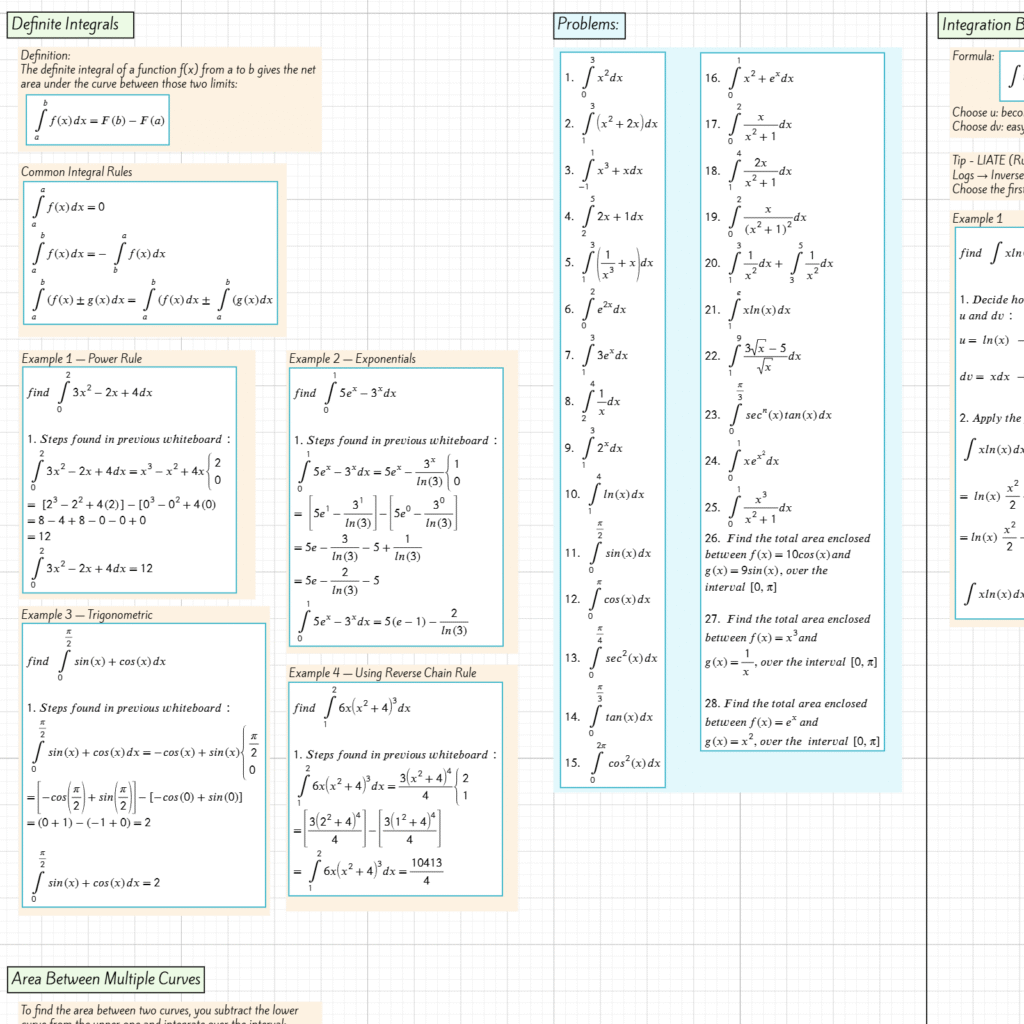 Definite Integrals
Definition:
The definite integral of a function f(x) from a to b gives the net
area under the curve between those two limits:
∫_a^b f(x)dx = F(b) − F(a)
Common Integral Rules
∫_a^a f(x)dx = 0
∫_a^b f(x)dx = − ∫_b^a f(x)dx
∫_a^b (f(x) ± g(x)dx = ∫_a^b (f(x)dx ± ∫_a^b (g(x)dx
Example 1 – Power Rule
find ∫_0^2 3x² − 2x + 4dx
1. Steps found in previous whiteboard :
∫_0^2 3x² − 2x + 4dx = x³ − x² + 4x{ 2 0
= [2³ − 2² + 4(2)] − [0³ − 0² + 4(0)
= 8 − 4 + 8 − 0 − 0 + 0
= 12
∫_0^2 3x² − 2x + 4dx = 12
Example 2 – Exponentials
find ∫_0^1 5e^x − 3^x dx
1. Steps found in previous whiteboard :
∫_0^1 5e^x − 3^x dx = 5e^x − 3^x/ln(3) { 1 0
= [5e¹ − 3¹/ln(3)] − [5e⁰ − 3⁰/ln(3)]
= 5e − 3/ln(3) − 5 + 1/ln(3)
= 5e − 2/ln(3) − 5
∫_0^1 5e^x − 3^x dx = 5(e − 1) − 2/ln(3)
Example 3 – Trigonometric
find ∫_0^{π/2} sin(x) + cos(x)dx
1. Steps found in previous whiteboard :
∫_0^{π/2} sin(x) + cos(x)dx = −cos(x) + sin(x){ π/2 0
= [−cos(π/2) + sin(π/2)] − [−cos(0) + sin(0)]
= (0 + 1) − (−1 + 0) = 2
∫_0^{π/2} sin(x) + cos(x)dx = 2
Example 4 – Using Reverse Chain Rule
find ∫_1^2 6x(x² + 4)³dx
1. Steps found in previous whiteboard :
∫_1^2 6x(x² + 4)³dx = 3(x² + 4)⁴/4 { 2 1
= [3(2² + 4)⁴/4] − [3(1² + 4)⁴/4]
= ∫_1^2 6x(x² + 4)³dx = 10413/4
Area Between Multiple Curves
To find the area between two curves, you subtract the lower
curve from the upper one and integrate over the interval:
Problems:
1. ∫_0^3 x²dx
2. ∫_1^3 (x² + 2x)dx
3. ∫_{−1}^1 x³ + xdx
4. ∫_2^5 2x + 1dx
5. ∫_1^3 (1/x³ + x)dx
6. ∫_0^2 e^{2x}dx
7. ∫_1^3 3e^x dx
8. ∫_2^4 1/x dx
9. ∫_1^3 2^x dx
10. ∫_1^4 ln(x)dx
11. ∫_0^{π/2} sin(x)dx
12. ∫_0^π cos(x)dx
13. ∫_0^{π/4} sec²(x)dx
14. ∫_0^{π/3} tan(x)dx
15. ∫_0^{2π} cos²(x)dx
16. ∫_0^1 x² + e^x dx
17. ∫_0^2 x/(x² + 1) dx
18. ∫_1^4 2x/(x² + 1) dx
19. ∫_0^2 x/(x² + 1)² dx
20. ∫_1^3 1/x² dx + ∫_3^5 1/x² dx
21. ∫_1^e xln(x)dx
22. ∫_1^9 (3√x − 5)/√x dx
23. ∫_0^{π/3} sec^n(x)tan(x)dx
24. ∫_0^1 xe^{x²}dx
25. ∫_0^1 x³/(x² + 1) dx
26. Find the total area enclosed
between f(x) = 10cos(x)and
g(x) = 9sin(x), over the
interval [0, π]
27. Find the total area enclosed
between f(x) = x³and
g(x) = 1/x, over the interval [0, π]
28. Find the total area enclosed
between f(x) = e^x and
g(x) = x², over the interval [0, π]
Integration B
Formula:
∫
Choose u: beco
Choose dv: easy
Tip - LIATE (Ru
Logs → Inverse
Choose the first
Example 1
find ∫ xln(
1. Decide ho
u and dv :
u = ln(x) −
dv = xdx −
2. Apply the
∫ xln(x)dx
= ln(x) x²/2
= ln(x) x²/2 −
∫ xln(x)dx